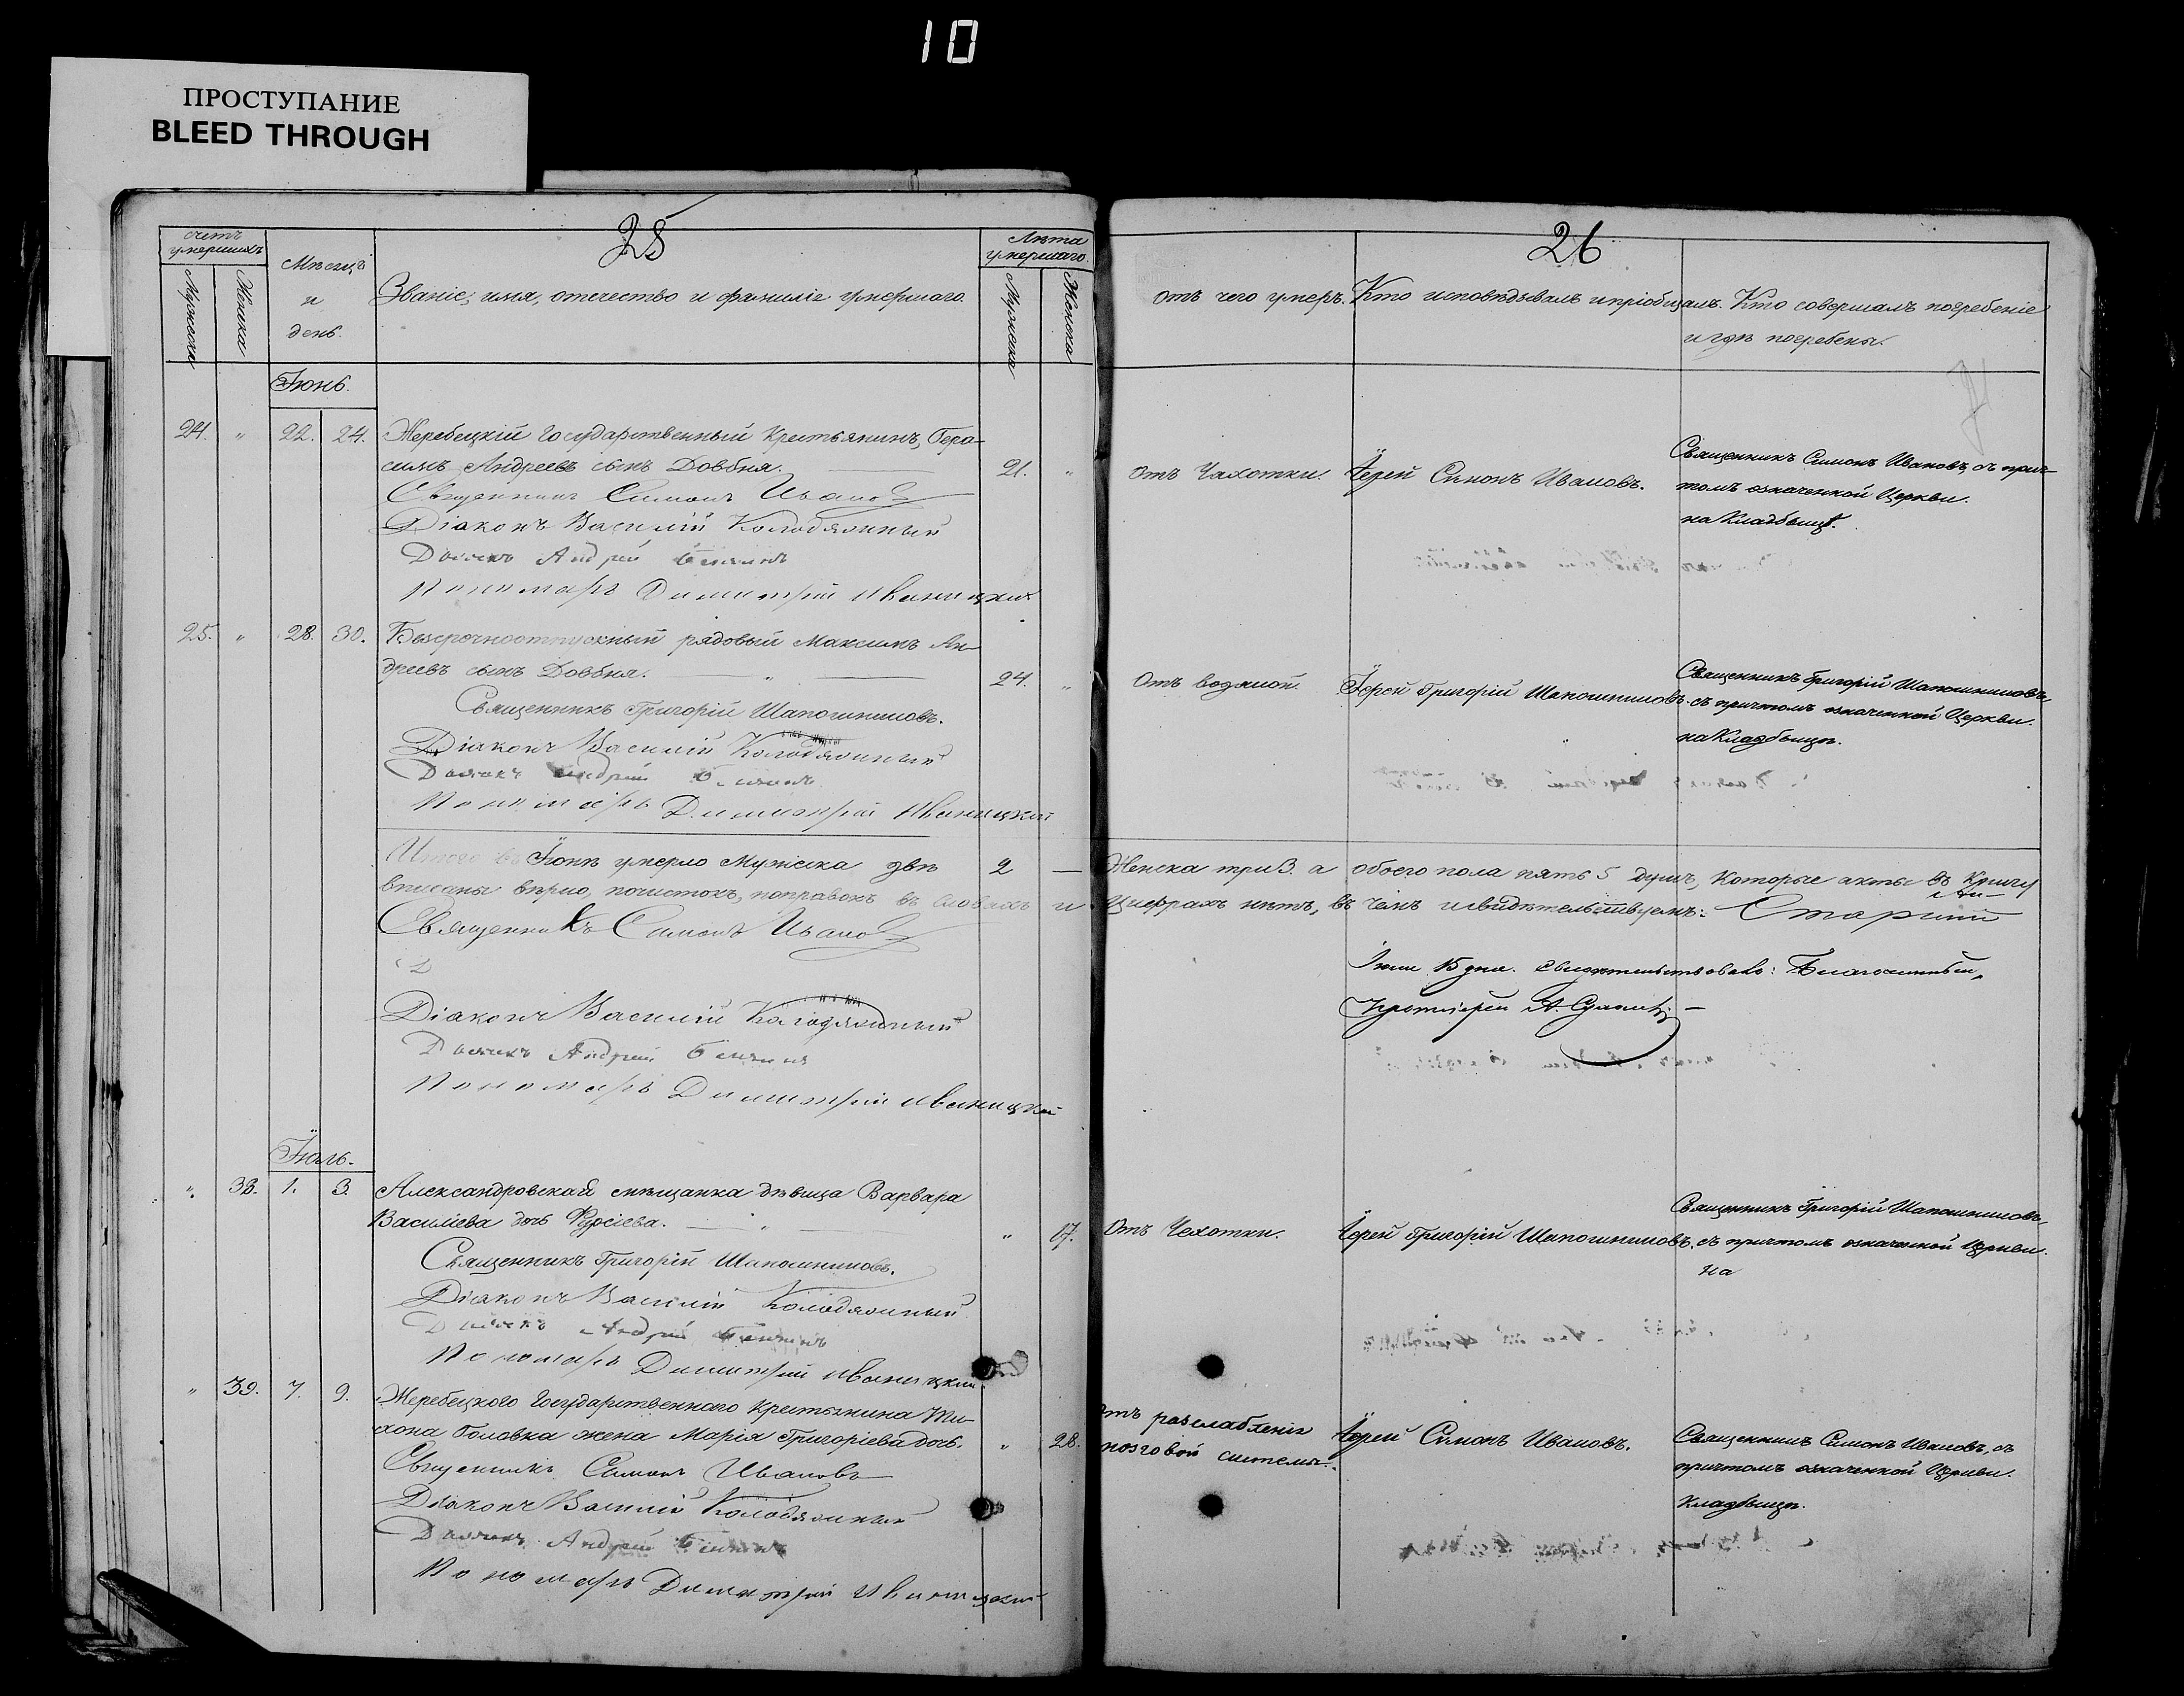 10
ПРОСТУПАНИЕ
BLEED THROUGH
25
счетъ умершихъ
Мужеска
Женска
Мѣсяцъ
и
день.
Званіе, имя, отечество и фамилія умершаго.
Лѣта умершаго.
Мужеска
Женска
26
отъ чего умеръ.
Кто исповѣдывалъ и пріобщалъ.
Кто совершалъ погребеніе
и гдѣ погребены.
Іюнь.
24. " 22. 24. Жеребецкій Государственный Крестьянинъ, Гера-
симъ Андреевъ сынъ Довбня. 21. "
отъ Чахотки. Іерей Симонъ Ивановъ.
Священникъ Симонъ Ивановъ, съ прич-
томъ означенной Церкви.
на Кладбищѣ.
Священникъ Симонъ Ивановъ
Діаконъ Василій Колодяжный
Дьячекъ Андрей
Пономарь Димитрій Иваницкій
25. " 28. 30. Безсрочноотпускный рядовый Максимъ Ан-
дреевъ сынъ Довбня. 24. "
Отъ водяной. Іерей Григорій Шапошниковъ.
Священникъ Григорій Шапошниковъ,
съ причтомъ означенной Церкви.
на Кладбищѣ.
Священникъ Григорій Шапошниковъ.
Діаконъ Василій Колодяжный
Дьячекъ Андрей
Пономарь Димитрій Иваницкій
Итого въ Іюнѣ умерло Мужеска двѣ 2 — Женска три 3. а обоего пола пять 5 душъ, Которые акты въ Книгу
вписаны вѣрно, почистокъ, поправокъ въ словахъ и цифрахъ нѣтъ, въ чемъ и свидѣтельствуемъ: Старшій
Священникъ Симонъ Ивановъ
Іюля 15 дня. свидѣтельствовалъ: Благочинный,
Протоіерей
Діаконъ Василій Колодяжный
Дьячекъ Андрей
Пономарь Димитрій Иваницкій
Іюль.
" 38. 1. 3. Александровская мѣщанка дѣвица Варвара
Василіева дочь " 17.
Отъ Чехотки. Іерей Григорій Шапошниковъ.
Священникъ Григорій Шапошниковъ,
съ причтомъ означенной Церкви.
на
Священникъ Григорій Шапошниковъ.
Діаконъ Василій Колодяжный
Дьячекъ Андрей
Пономарь Димитрій Иваницкій
" 39. 7. 9. Жеребецкого Государственнаго Крестьянина Ти-
хона Головка жена Марія Григоріева дочь. " 28.
отъ разслабленія
мозговой системы.
Іерей Симонъ Ивановъ.
Священникъ Симонъ Ивановъ, съ
причтомъ означенной Церкви.
Кладбищѣ.
Священникъ Симонъ Ивановъ
Діаконъ Василій Колодяжный
Дьячекъ Андрей
Пономарь Димитрій Иваницкій